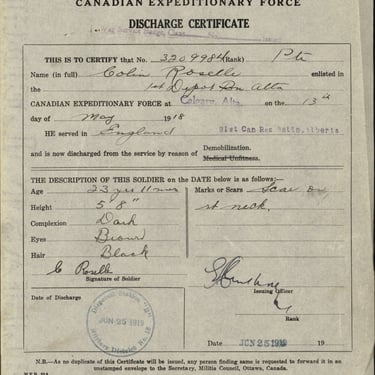 CANADIAN EXPEDITIONARY FORCE
DISCHARGE CERTIFICATE
War Service Badge, Class
THIS IS TO CERTIFY that No. 3209984 (Rank) Pte
Name (in full) Colin Roselle enlisted in
the 1st Depot Bn Alta
CANADIAN EXPEDITIONARY FORCE at Calgary, Alta. on the 13th
day of May 1918
HE served in England 21st Can Res Battn, Alberta
and is now discharged from the service by reason of Demobilization.
Medical Unfitness.
THE DESCRIPTION OF THIS SOLDIER on the DATE below is as follows:—
Age 23 yrs 11 mos Marks or Scars Scar on
Height 5' 8" rt neck.
Complexion Dark
Eyes Brown
Hair Black
C Roselle
Signature of Soldier
Issuing Officer
Date of Discharge
Rank
JUN 25 1919
Date JUN 25 1919 19
N.B.—As no duplicate of this Certificate will be issued, any person finding same is requested to forward it in an
unstamped envelope to the Secretary, Militia Council, Ottawa, Canada.